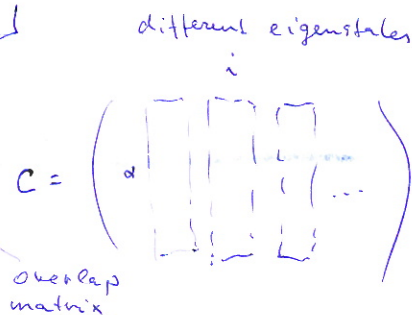 ]
different eigenstates
i
C = ( α ... )
overlap
matrix